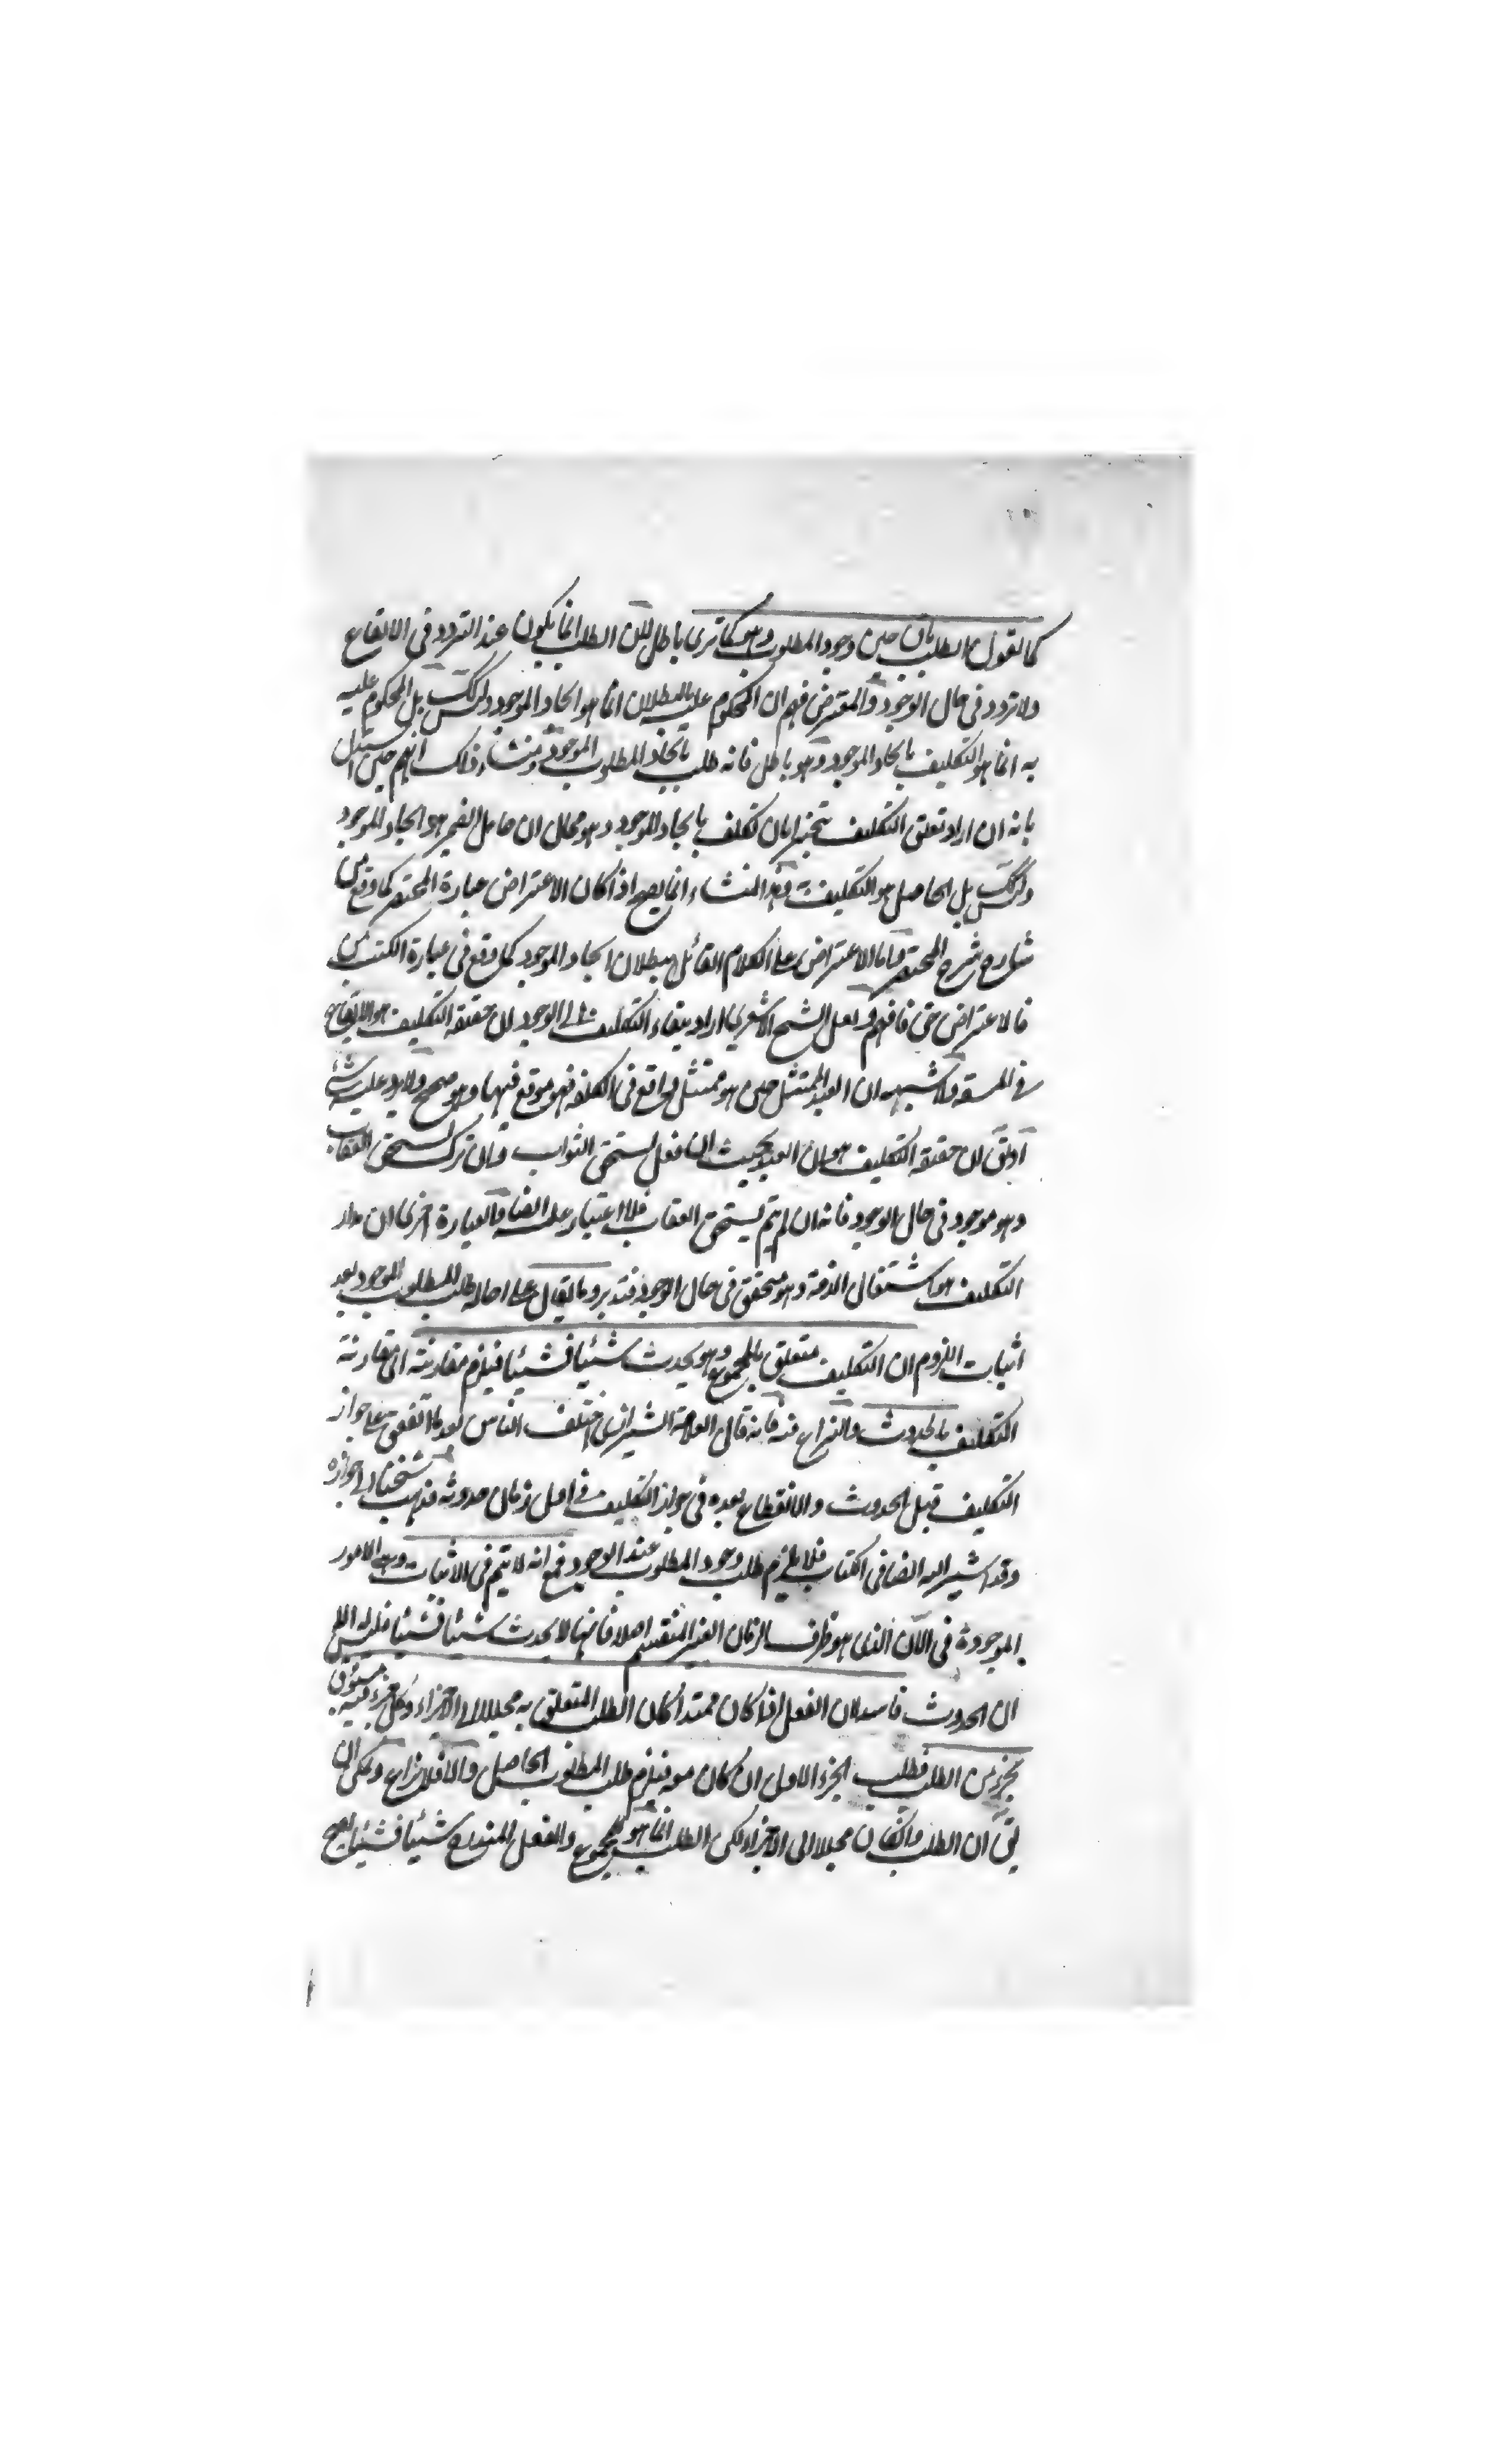 كالقول الطلب بان حين وجود المطلوب وهو كما ترى باطل لان الطلب انما يكون عند التردد في الايقاع
ولا تردد في حال الوجود والمعترض فهم ان المحكوم عليه بالبطلان انما هو ايجاد الموجود وليس كك بل المحكوم عليه
به انما هو التكليف بايجاد الموجود وهو باطل فانه طلب بايجاد المطلوب الموجود ومنشاء ذلك انهم حين استدل
بانه ان اراد تعلق التكليف تكليف بايجاد الموجود وهو محال ان حاصل الضمير هو ايجاد الموجود
وليس كك بل الحاصل هو التكليف به وهذا المنشاء انما يصح اذا كان الاعتراض عبارة المختصر كما وقع من
شارح شرح المختصر واما الاعتراض على الكلام القائل ببطلان ايجاد الموجود كما وقع في عبارة الكتب من
فالاعتراض حق فافهم ولعل الشيخ الاشعري اراد ببقاء التكليف الى الوجود لان حقيقة التكليف هو الايقاع
في ولا شبهة ان العبد الممتثل حين هو ممتثل واقع في الكلفة فهو موقع فيها وهو صحيح ولا يرد عليه شئ
او يق لان حقيقة التكليف هو ان العبد بحيث ان فعل يستحق الثواب وان ترك يستحق العقاب
وهو موجود في حال الوجود فانه ان لم يتم يستحق العقاب فلا اعتبار عليه ايضا والعبارة اخرى ان مدار
التكليف هو اشتغال الذمة وهو متحقق في حال الوجود فتدبر وما يقال على احالة طلب المطلوب الموجود بعد
اثبات اللزوم ان التكليف متعلق بالمجموع وهو يحدث شيئا فشيئا فيلزم مقارنته اي مقارنة
التكليف بالحدوث والنزاع فيه فانه قال العلامة الشيرازي اختلف الناس بعد الاتفاق على جواز
التكليف قبل الحدوث والانقطاع بعده في جواز التكليف في اول زمان حدوثه فذهب شيخنا الى جوازه
وقد اشير اليه ايضا في الكتاب فلا يلزم طلب وجود المطلوب عند الوجود فمع انه لا يتم في الانيات وهي الامور
الموجودة في الآن الذي هو ظرف الزمان الغير المنقسم اصلا فانها لا يحدث شيئا فشيئا فليس له
ان الحدوث فاسد لان الفعل اذا كان ممتدا كان الطلب المتعلق به محيلا الى الاجزاء وكل جزء فيه مسبوق
بجزء من الطلب فطلب الجزء الاول ان كان معه فيلزم طلب المطلوب الحاصل والا فلا نزاع ويمكن ان
يق ان الطلب وان كان محيلا الى الاجزاء لكن الطلب انما هو للمجموع والفعل المتدرج شيئا فشيئا يصح